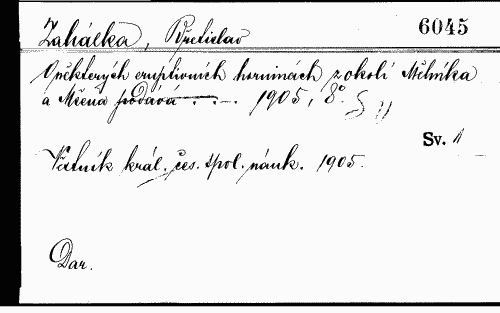 Zahálka, Břetislav 6045
O některých eruptivních horninách z okolí Mělníka
a Mšena podává . . – . 1905, 8°.
Sv. 1
Věstník král. čes. spol. náuk. 1905.
Dar.